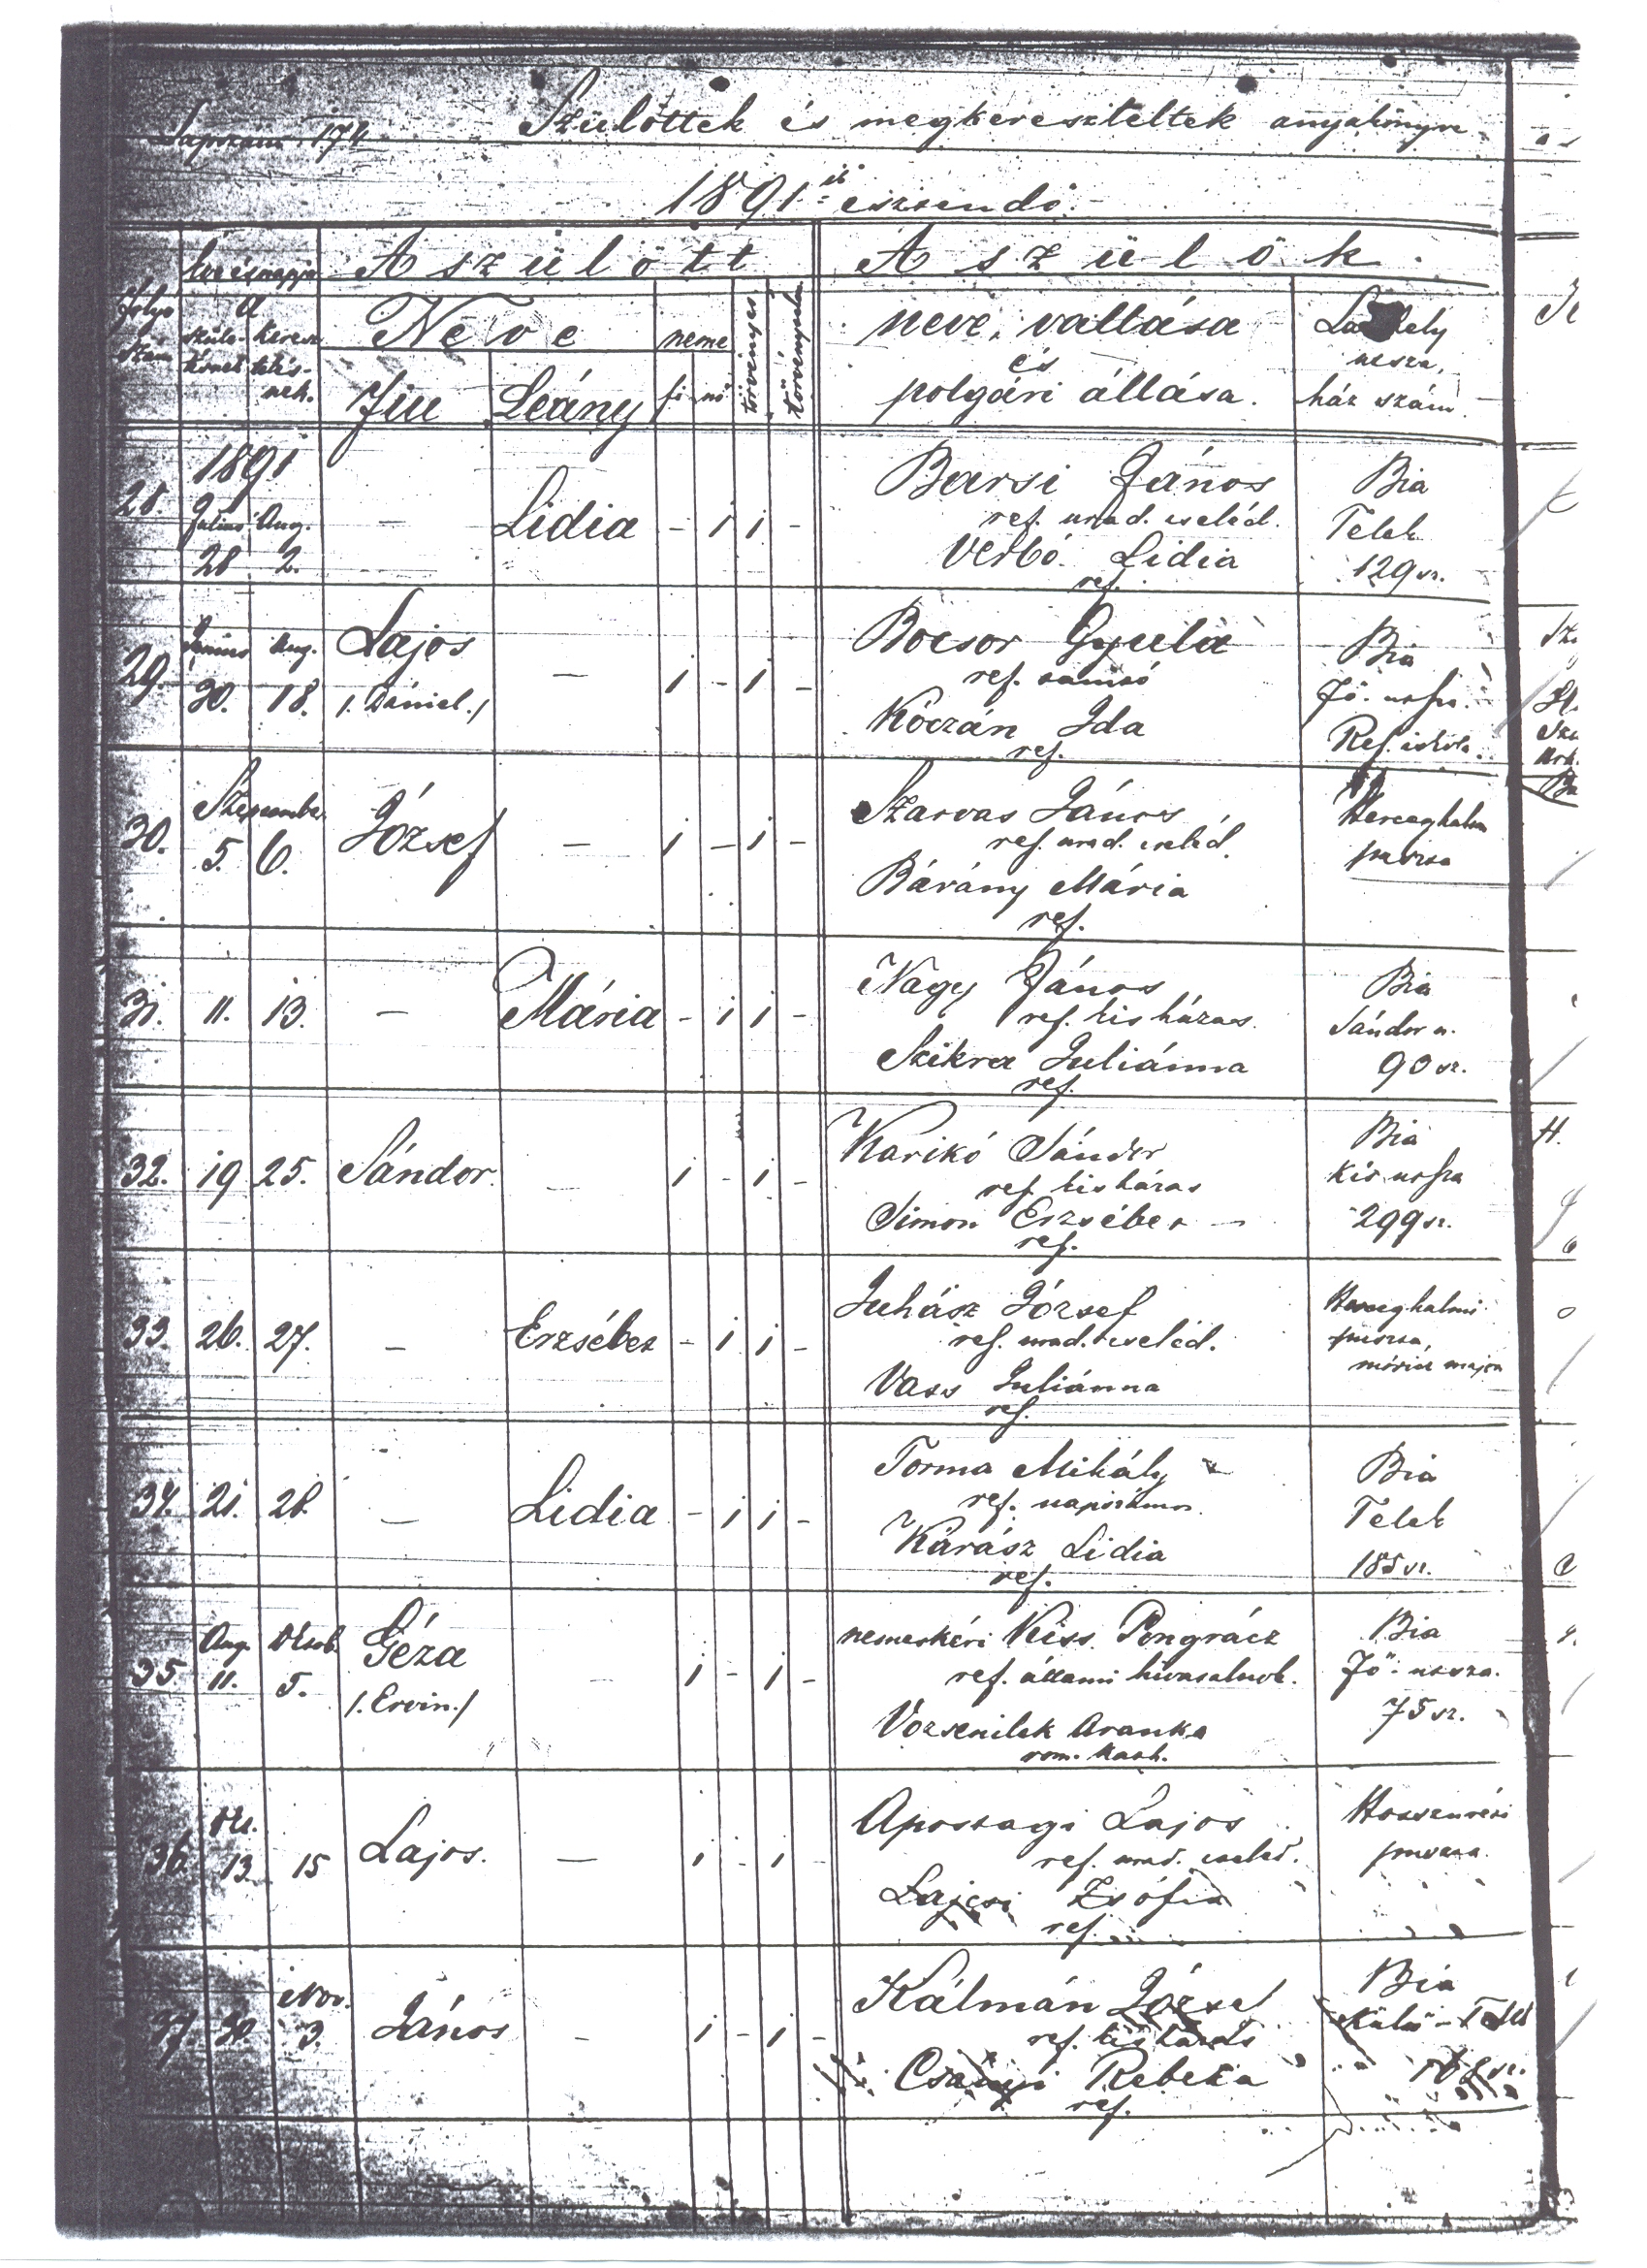 Lapszám 174
Születtek és megkereszteltek anyakönyve
1891ik esztendő.
folyó szám
Év és napja
a
szüle- tésnek
keresz telés- nek.
A született
Neve
Fiu
Leány
neme
fi
nő
törvényes
törvénytelen
A szülők.
neve, vallása
és
polgári állása.
Lakhely
utcza,
ház szám.
28.
1891
Julius
28
Aug.
2.
—
Lidia
- 1 1 -
Barsi János
ref. urad. cseléd.
Verbó Lidia
ref.
Bia
Telek
129 sz.
29.
Junius
30.
Aug.
18.
Lajos
/. Dániel./
—
1 - 1 -
Bocsor Gyula
ref. tanító
Kóczán Ida
ref.
Bia
Fő-utcza.
Ref. iskola.
30.
Szeptember
5.
6.
József
—
1 - 1 -
Szarvas János
ref. urad. cseléd.
Bárány Mária
ref.
Herceghalm
puszta
31.
11.
13.
—
Mária
- 1 1 -
Nagy János
ref. kis házas.
Szikra Juliánna
ref.
Bia
Sándor u.
90 sz.
32.
19
25.
Sándor.
—
1 - 1 -
Karikó Sándor
ref. kis házas
Simon Erzsébet —
ref.
Bia
Kis utcza
299 sz.
33.
26.
27.
—
Erzsébet
- 1 1 -
Juhász József
ref. urad. cseléd.
Vass Juliánna
ref.
Herceghalmi
puszta,
móricz major
34.
21.
28.
—
Lidia
- 1 1 -
Torma Mihály
ref. napszámos.
Kárász Lidia
ref.
Bia
Telek
185 sz.
35.
Aug.
11.
Oktob.
5.
Géza
/. Ervin./
—
1 - 1 -
nemeskéri Kiss Pongrácz
ref. állami hivatalnok.
Vozsenilek Aranka
rom. kath.
Bia
Fő-utcza.
75 sz.
36.
Okt.
13.
15
Lajos.
—
1 - 1 -
Apostagi Lajos
ref. urad. cseléd.
Lajcsi Zsófia
ref.
puszta.
37.
30.
Nov.
3.
János
-
1 - 1 -
Kálmán József
ref. kis házas
Csányi Rebeka
ref.
Bia
Külső-Telek